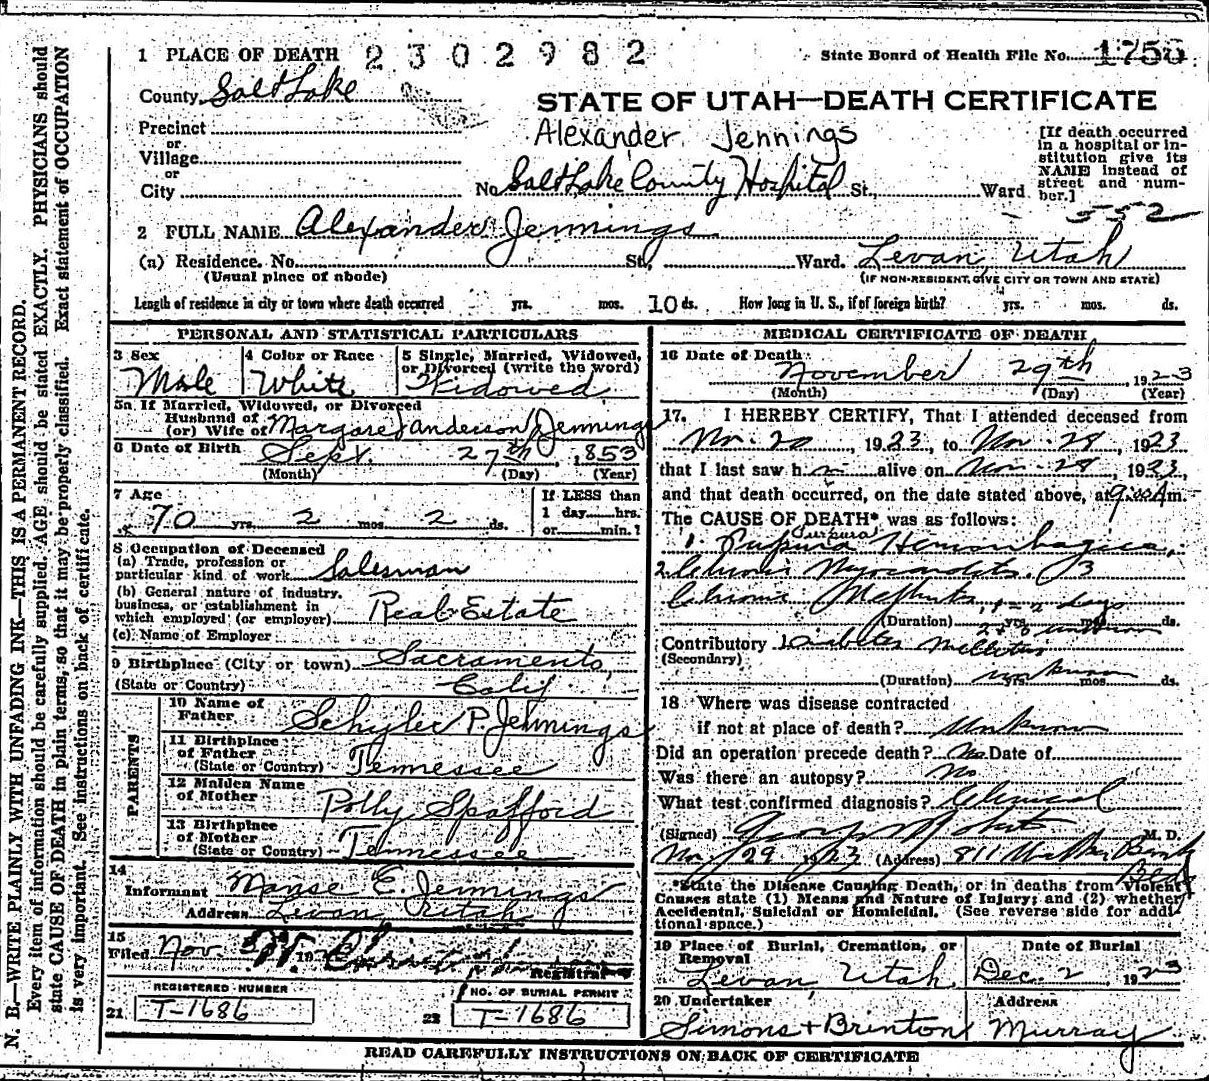 1 PLACE OF DEATH 2302982 State Board of Health File No. 1750
County Salt Lake
STATE OF UTAH—DEATH CERTIFICATE
Precinct
Alexander Jennings
or
Village
or
City No. Salt Lake County Hospital St. Ward
[If death occurred
in a hospital or in-
stitution give its
NAME instead of
street and num-
ber.]
552
2 FULL NAME Alexander Jennings
(a) Residence. No. St., Ward. Levan, Utah
(Usual place of abode) (IF NON-RESIDENT, GIVE CITY OR TOWN AND STATE)
Length of residence in city or town where death occurred yrs. mos. 10 ds. How long in U. S., if of foreign birth? yrs. mos. ds.
PERSONAL AND STATISTICAL PARTICULARS
3 Sex 4 Color or Race 5 Single, Married, Widowed,
or Divorced (write the word)
Male White Widowed
5a If Married, Widowed, or Divorced
Husband of
(or) Wife of Margaret Anderson Jennings
6 Date of Birth Sept. 27th, 1853
(Month) (Day) (Year)
7 Age If LESS than
1 day hrs.
70 yrs. 2 mos. 2 ds. or min.?
8 Occupation of Deceased
(a) Trade, profession or
particular kind of work Salesman
(b) General nature of industry,
business, or establishment in
which employed (or employer) Real Estate
(c) Name of Employer
9 Birthplace (City or town) Sacramento,
(State or Country) Calif
PARENTS
10 Name of
Father Schyler P. Jennings
11 Birthplace
of Father
(State or Country) Tennessee
12 Maiden Name
of Mother Polly Spafford
13 Birthplace
of Mother
(State or Country) Tennessee
14
Informant Manse E. Jennings
Address Levan, Utah
15
Filed Nov. 19
Registrar
REGISTERED NUMBER NO. OF BURIAL PERMIT
21 T-1686 22 T-1686
MEDICAL CERTIFICATE OF DEATH
16 Date of Death
November 29th 1923
(Month) (Day) (Year)
17. I HEREBY CERTIFY, That I attended deceased from
Nov. 20, 1923, to Nov. 28, 1923
that I last saw h alive on Nov. 28, 1923,
and that death occurred, on the date stated above, at 9:00 A m.
The CAUSE OF DEATH* was as follows:
Purpura
1. Pupura Hemorrhagica,
2 Chronic Myocarditis. 3
Chronic Nephritis, days
(Duration) yrs. mos. ds.
Contributory Diabetes Mellitus
(Secondary)
(Duration) unknown yrs. mos. ds.
18 Where was disease contracted
if not at place of death? Unknown
Did an operation precede death? No Date of
Was there an autopsy? No
What test confirmed diagnosis? Clinical
(Signed) M. D.
Nov 29 1923 (Address) 811 Walker Bank
Bldg
*State the Disease Causing Death, or in deaths from Violent
Causes state (1) Means and Nature of Injury; and (2) whether
Accidental, Suicidal or Homicidal. (See reverse side for addi-
tional space.)
19 Place of Burial, Cremation, or Date of Burial
Removal
Levan, Utah Dec. 2, 1923
20 Undertaker Address
Simons + Brinton Murray
READ CAREFULLY INSTRUCTIONS ON BACK OF CERTIFICATE
N. B.—WRITE PLAINLY WITH UNFADING INK—THIS IS A PERMANENT RECORD.
Every item of information should be carefully supplied. AGE should be stated EXACTLY. PHYSICIANS should
state CAUSE OF DEATH in plain terms, so that it may be properly classified. Exact statement of OCCUPATION
is very important. See instructions on back of certificate.